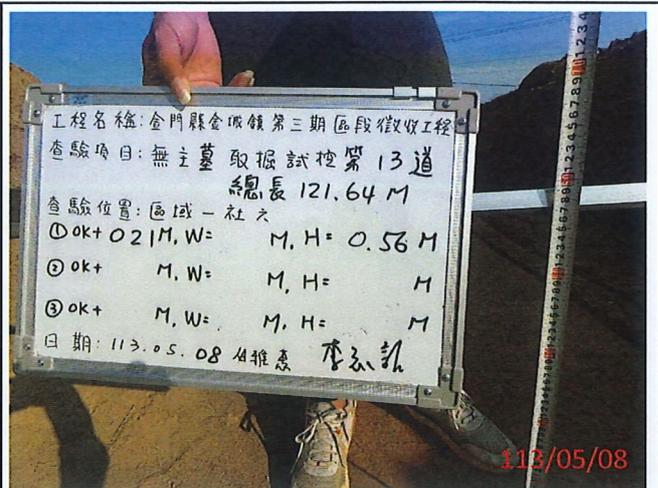 工程名稱:金門縣金城鎮第三期區段徵收工程
查驗項目:無主墓 取掘試挖第13道
總長 121.64 M
查驗位置:區域一社六
① 0K+ 021M, W= M, H= 0.56 M
② 0K+ M, W= M, H= M
③ 0K+ M, W= M, H= M
日期:113.05.08
113/05/08